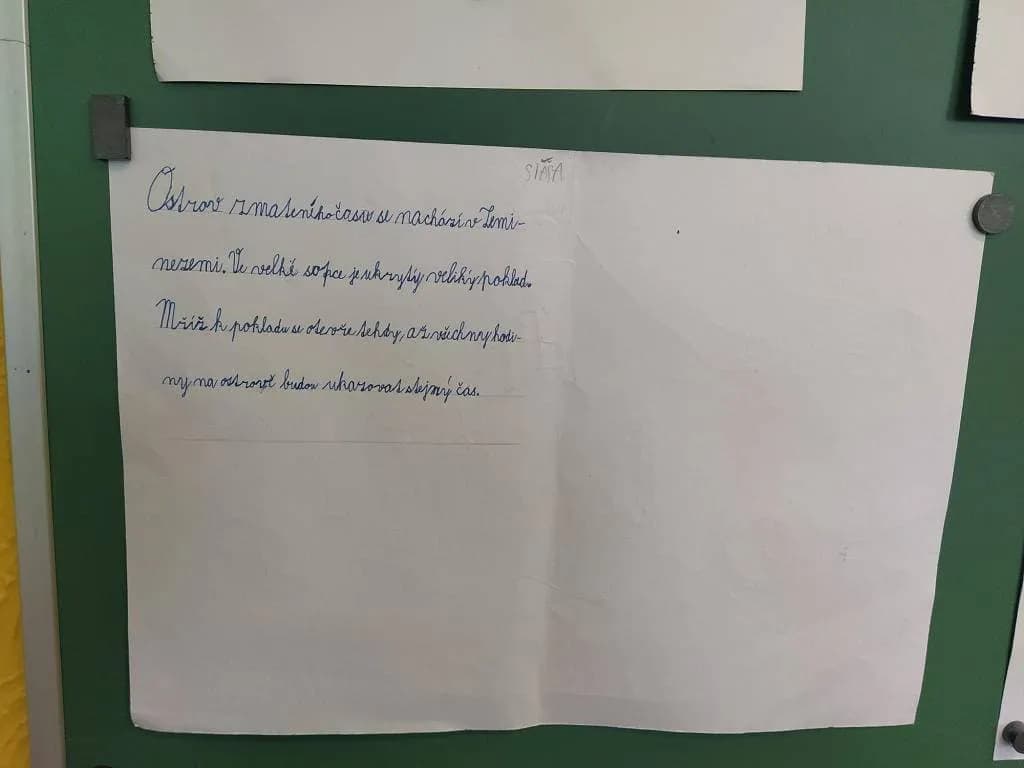 STÁŠA
Ostrov zmateného času se nachází v Zemi-
nezemi. Ve velké sopce je ukrytý veliký poklad.
Mříž k pokladu se otevře tehdy, až všechny hodi-
ny na ostrově budou ukazovat stejný čas.